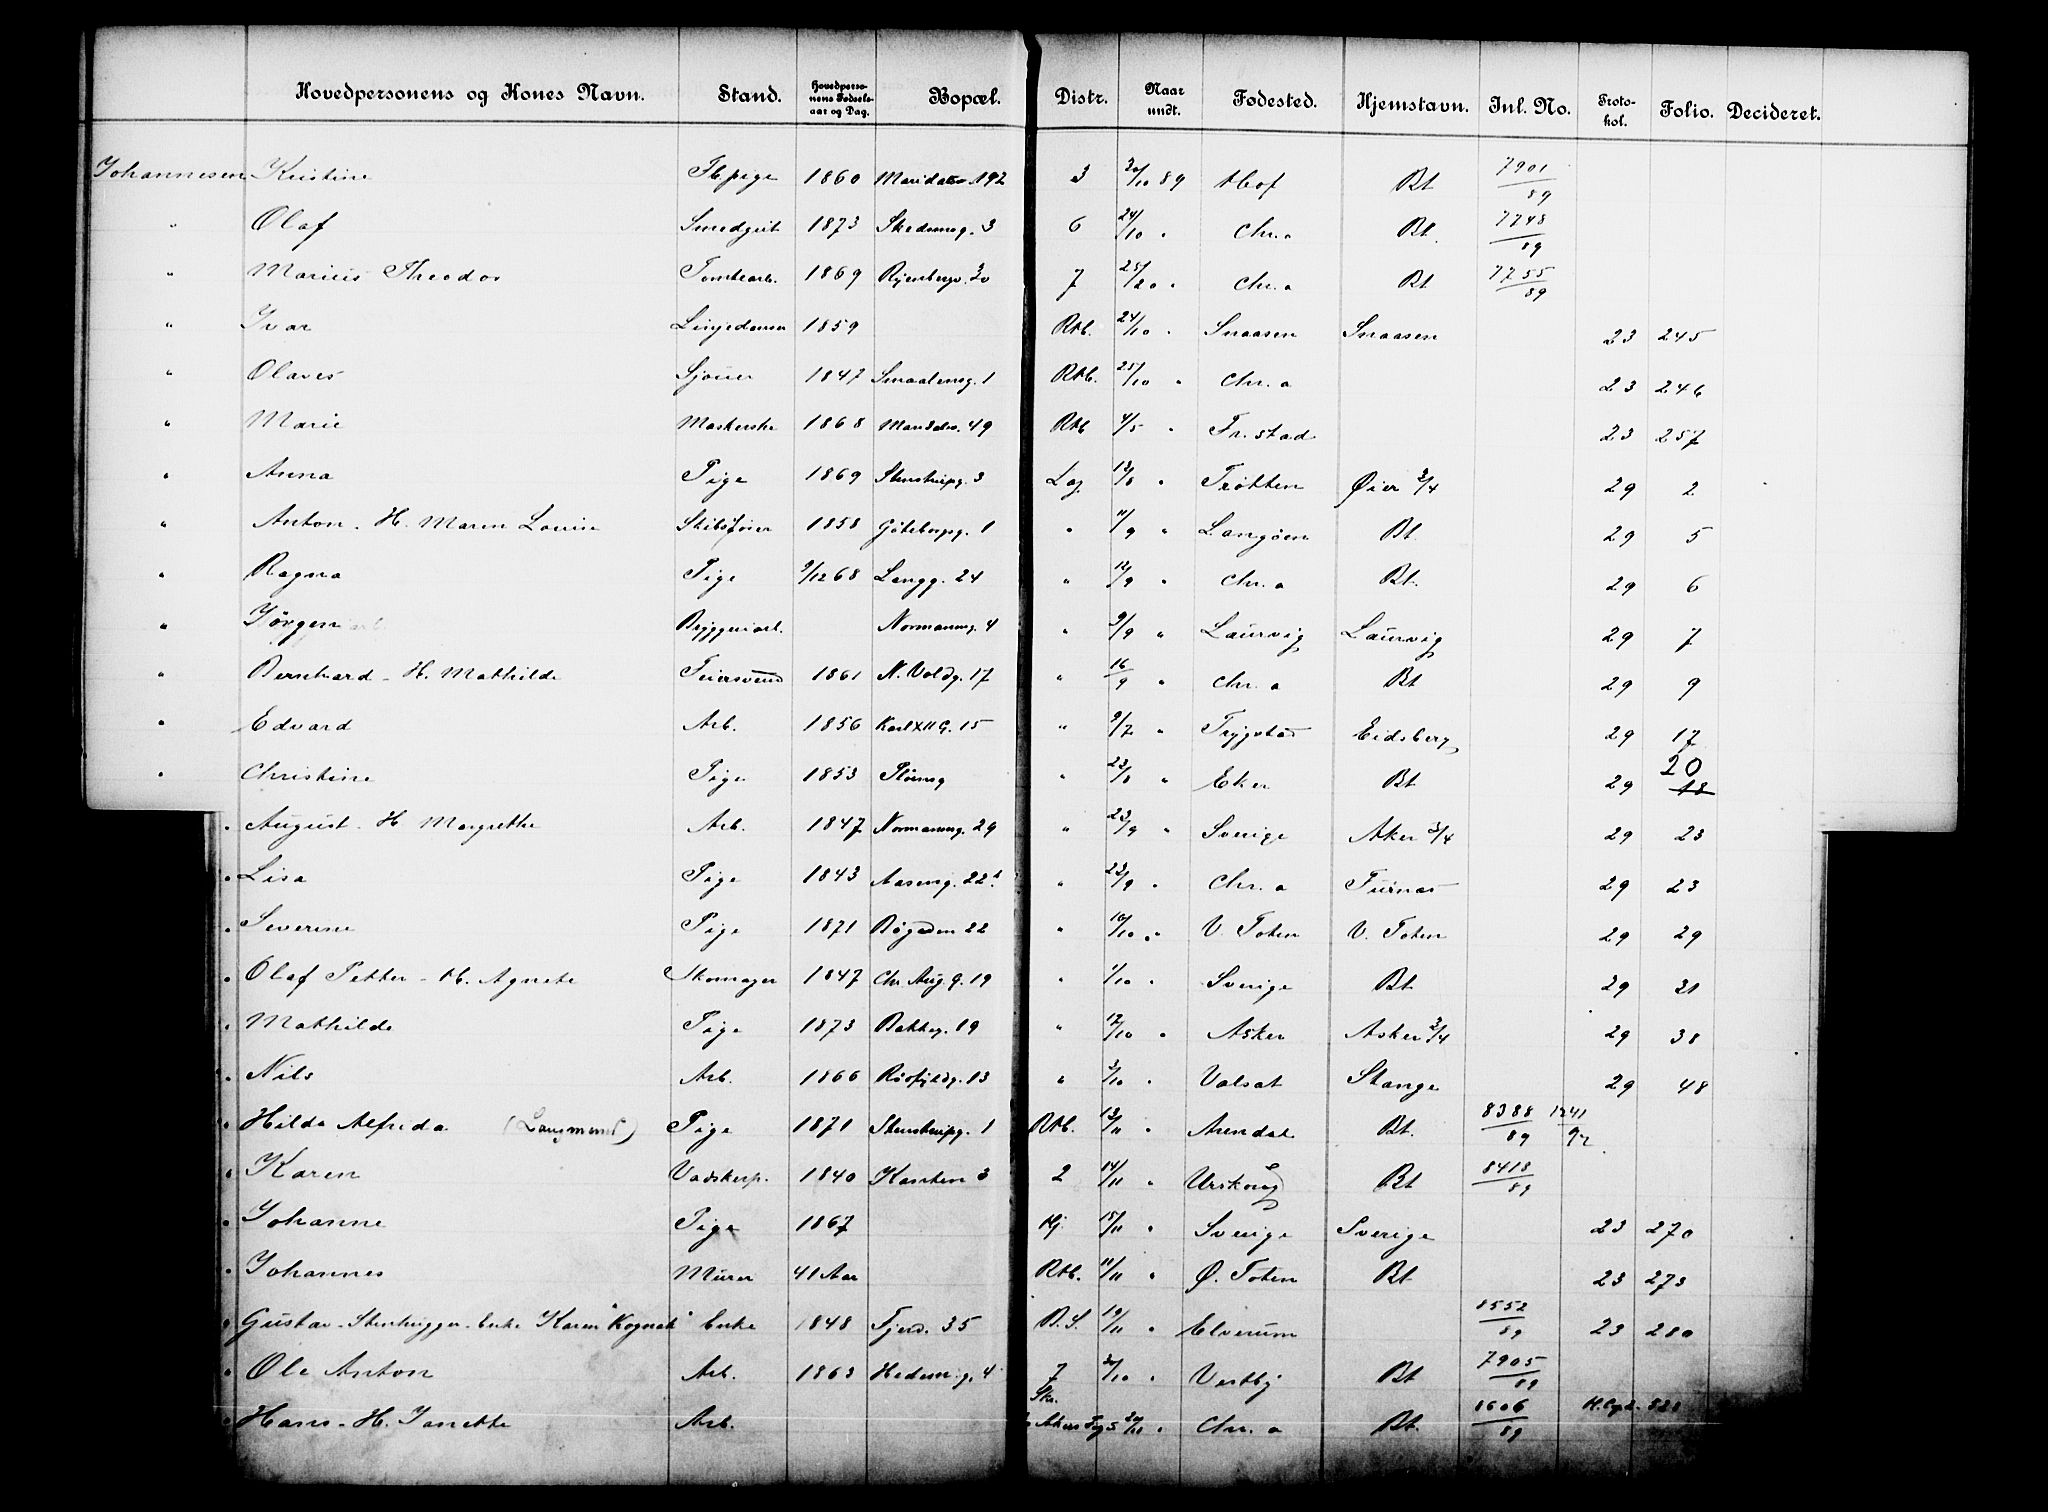 Hovedpersonens og Kones Navn. Stand. Hovedpersonens Fødselsaar og Dag. Bopæl. Distr. Naar undt. Fødested. Hjemstavn. Inl. No. Protokol. Folio. Decideret.
Johannesen Kristine Fbpige 1860 Maridalsv. 192 3 30/10 89 Hof Bt 7901/89
" Olaf Smedgut 1873 6 24/10 " Chr.a Bt. 7748/89
" Marius Theodor Tomtearb. 1869 Ryenbergv. 30 7 25/10 " Chr.a Bt 7755/89
" Ivar 1859 Rkb. 24/10 " Snaasen Snaasen 23 245
" Olaves Sjouer 1847 Smaalensg. 1 Rkb. 25/10 " Chr.a 23 246
" Marie 1868 Maridalsv. 49 Rkb 4/5 " Fr.stad 23 257
" Anna Pige 1869 Stenstrupg. 3 Lag 13/8 " Trötten Øier 3/4 29 2
" Anton - H. Maren Louise 1858 Göteborgg. 1 " 11/9 " Langöen Bt. 29 5
" Ragna Pige 9/12 68 Langg. 24 " 12/9 " Chr.a Bt. 29 6
" Jörgen Bryggeriarb. Normannsg. 4 " 9/9 " Laurvig Laurvig 29 7
" Bernhard - H. Mathilde Feiersvend 1861 N. Voldg. 17 " 16/9 " Chr.a Bt 29 9
" Edvard Arb. 1856 Karl XII G. 15 " 9/7 " Trygstad Eidsberg 29 17
" Christine Pige 1853 " 23/8 " Eker Bt 29 20 18
" August - H Margrethe Arb. 1847 Normannsg. 29 " 23/9 " Sverige Aker 3/4 29 23
" Lisa Pige 1843 Aaseng. 22 " 23/9 " Chr.a Furnæs 29 23
" Severine Pige 1871 22 " 10/10 " V. Toten V. Toten 29 29
" Olaf Petter - H. Agnete Skomager 1847 Chr Aug. G. 19 " 1/10 " Sverige Bt 29 31
" Mathilde Pige 1873 Bakkeg. 19 " 17/10 " Asker Asker 3/4 29 38
" Nils Arb. 1866 13 " 3/10 " Valsøt Stange 29 48
" Hilda Alfrida (Langmend) Pige 1871 Stenstrupg. 1 Rkb. 13/11 " Arendal Bt. 8388/89 1241/92
" Karen Vadskerp. 1840 Kanten 3 2 14/11 " Urskoug Bt 8418/89
" Johanne Pige 1867 Hj. 15/11 " Sverige Sverige 23 270
" Johannes Murer 41 Aar Rkb. 11/11 " Ø. Toten Bt 23 273
" Gustav - Stenhugger - Enke Karen "Kognak" Enke 1848 Fjerd. 35 B.S. 19/11 " Elverum 8552/89 23 280
" Ole Anton Arb. 1863 Hedem.g. 4 7 30/10 " Vestby Bt 7905/89
" Hans - H. Janette Arb. Akers 20/11 " Chr.a Bt. 8606/89